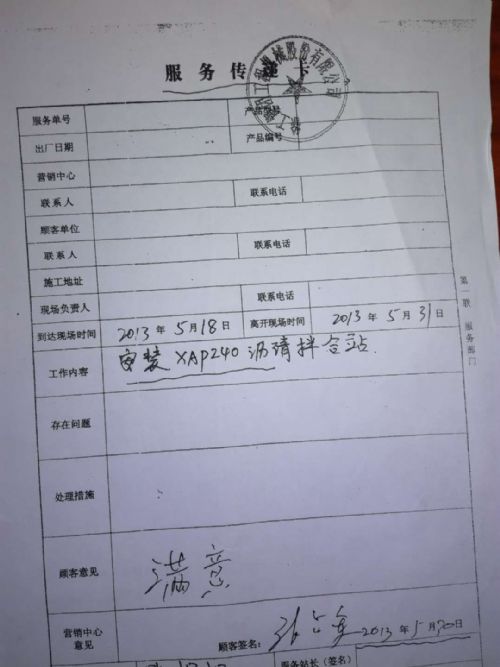 服务传递卡
工程机械股份有限公司
服务单号
出厂日期 产品编号
营销中心
联系人 联系电话
顾客单位
联系人 联系电话
施工地址
现场负责人 联系电话
到达现场时间 2013年5月18日 离开现场时间 2013年5月31日
工作内容 安装XAP240沥青拌合站.
存在问题
处理措施
顾客意见 满意
营销中心意见 顾客签名: 2013年5月30日
服务站长(签名)
第一联 服务部门